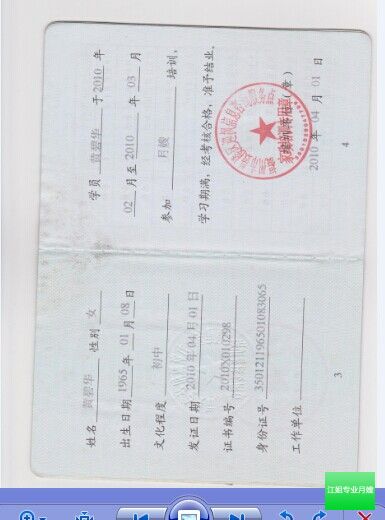 姓名 黄碧华 性别 女
出生日期 1965 年 01 月 08 日
文化程度 初中
发证日期 2010 年 04 月 01 日
证书编号 2010X010298
身份证号 350121196501083065
工作单位
3
学员 黄碧华 于 2010 年
02 月至 2010 年 03 月
参加 月嫂 培训,
学习期满,经考核合格,准予结业。
(章)
2010 年 04 月 01 日
4
江姐专业月嫂